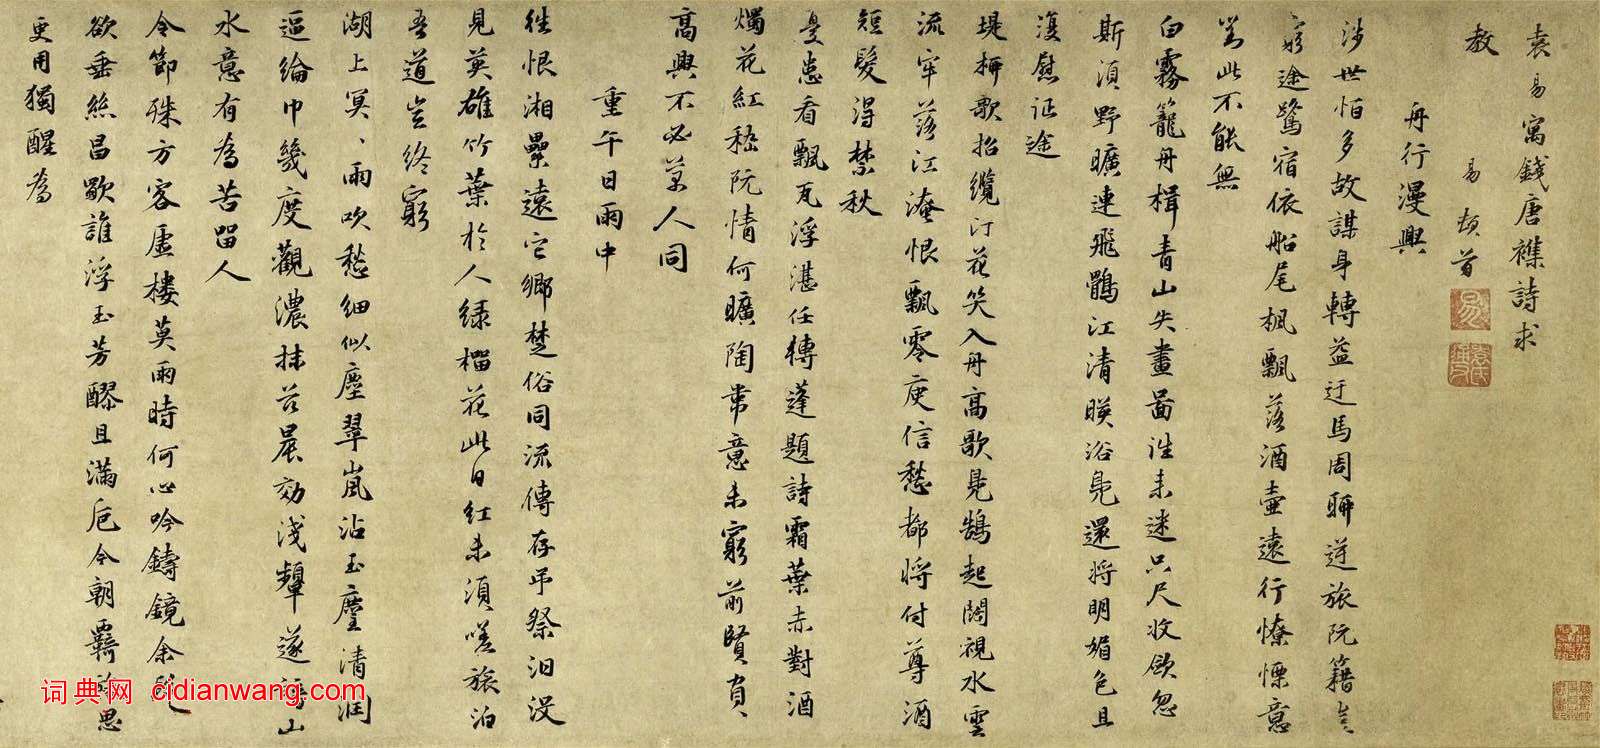 袁易寓錢唐襍詩求
教
易頓首
舟行漫興
涉世怕多故謀身轉益迂馬周聊逆旅阮籍
窮途鷺宿依船尾楓飄落酒壺遠行憭慄意
對此不能無
白霧籠舟楫青山失畫啚注未迷只尺收欲忽
斯須野曠連飛鶻江清暎浴鳧還將明媚色且
復慰征途
堤柳歌招纜汀花笑入舟高歌鳧鵠起闊視水雲
流牢落江淹恨飄零庾信愁都將付尊酒
短髮得禁秋
憂患看飄瓦浮湛任轉蓬題詩霜葉赤對酒
燭花紅嵇阮情何曠陶韋意未窮前賢有
高興不必萬人同
重午日雨中
往恨湘纍遠它鄉楚俗同流傳存弔祭汩沒
見英雄竹葉於人綠榴花此日紅未須嗟旅泊
吾道豈終窮
湖上冥、雨吹愁細似塵翠嵐沾玉麈清潤
逼綸巾幾度觀濃抹茲晨効淺顰遂
山
水意有為苦留人
令節殊方客虛樓莫雨時何心吟鑄鏡余
欲垂絲昌歜誰浮玉芳醪且滿卮今朝覇
思
更用獨醒為
词典网 cidianwang.com